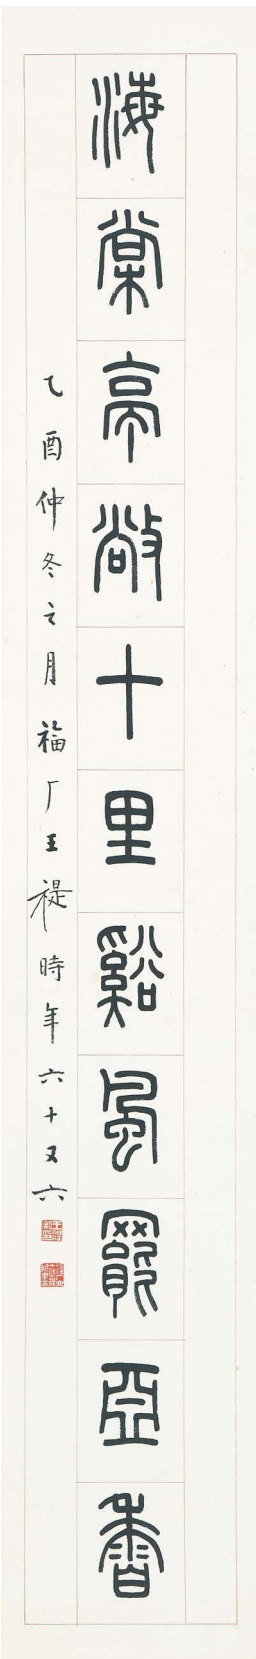 海棠亭敞十里谿風罷亞香
乙酉仲冬之月福厂王禔時年六十又六